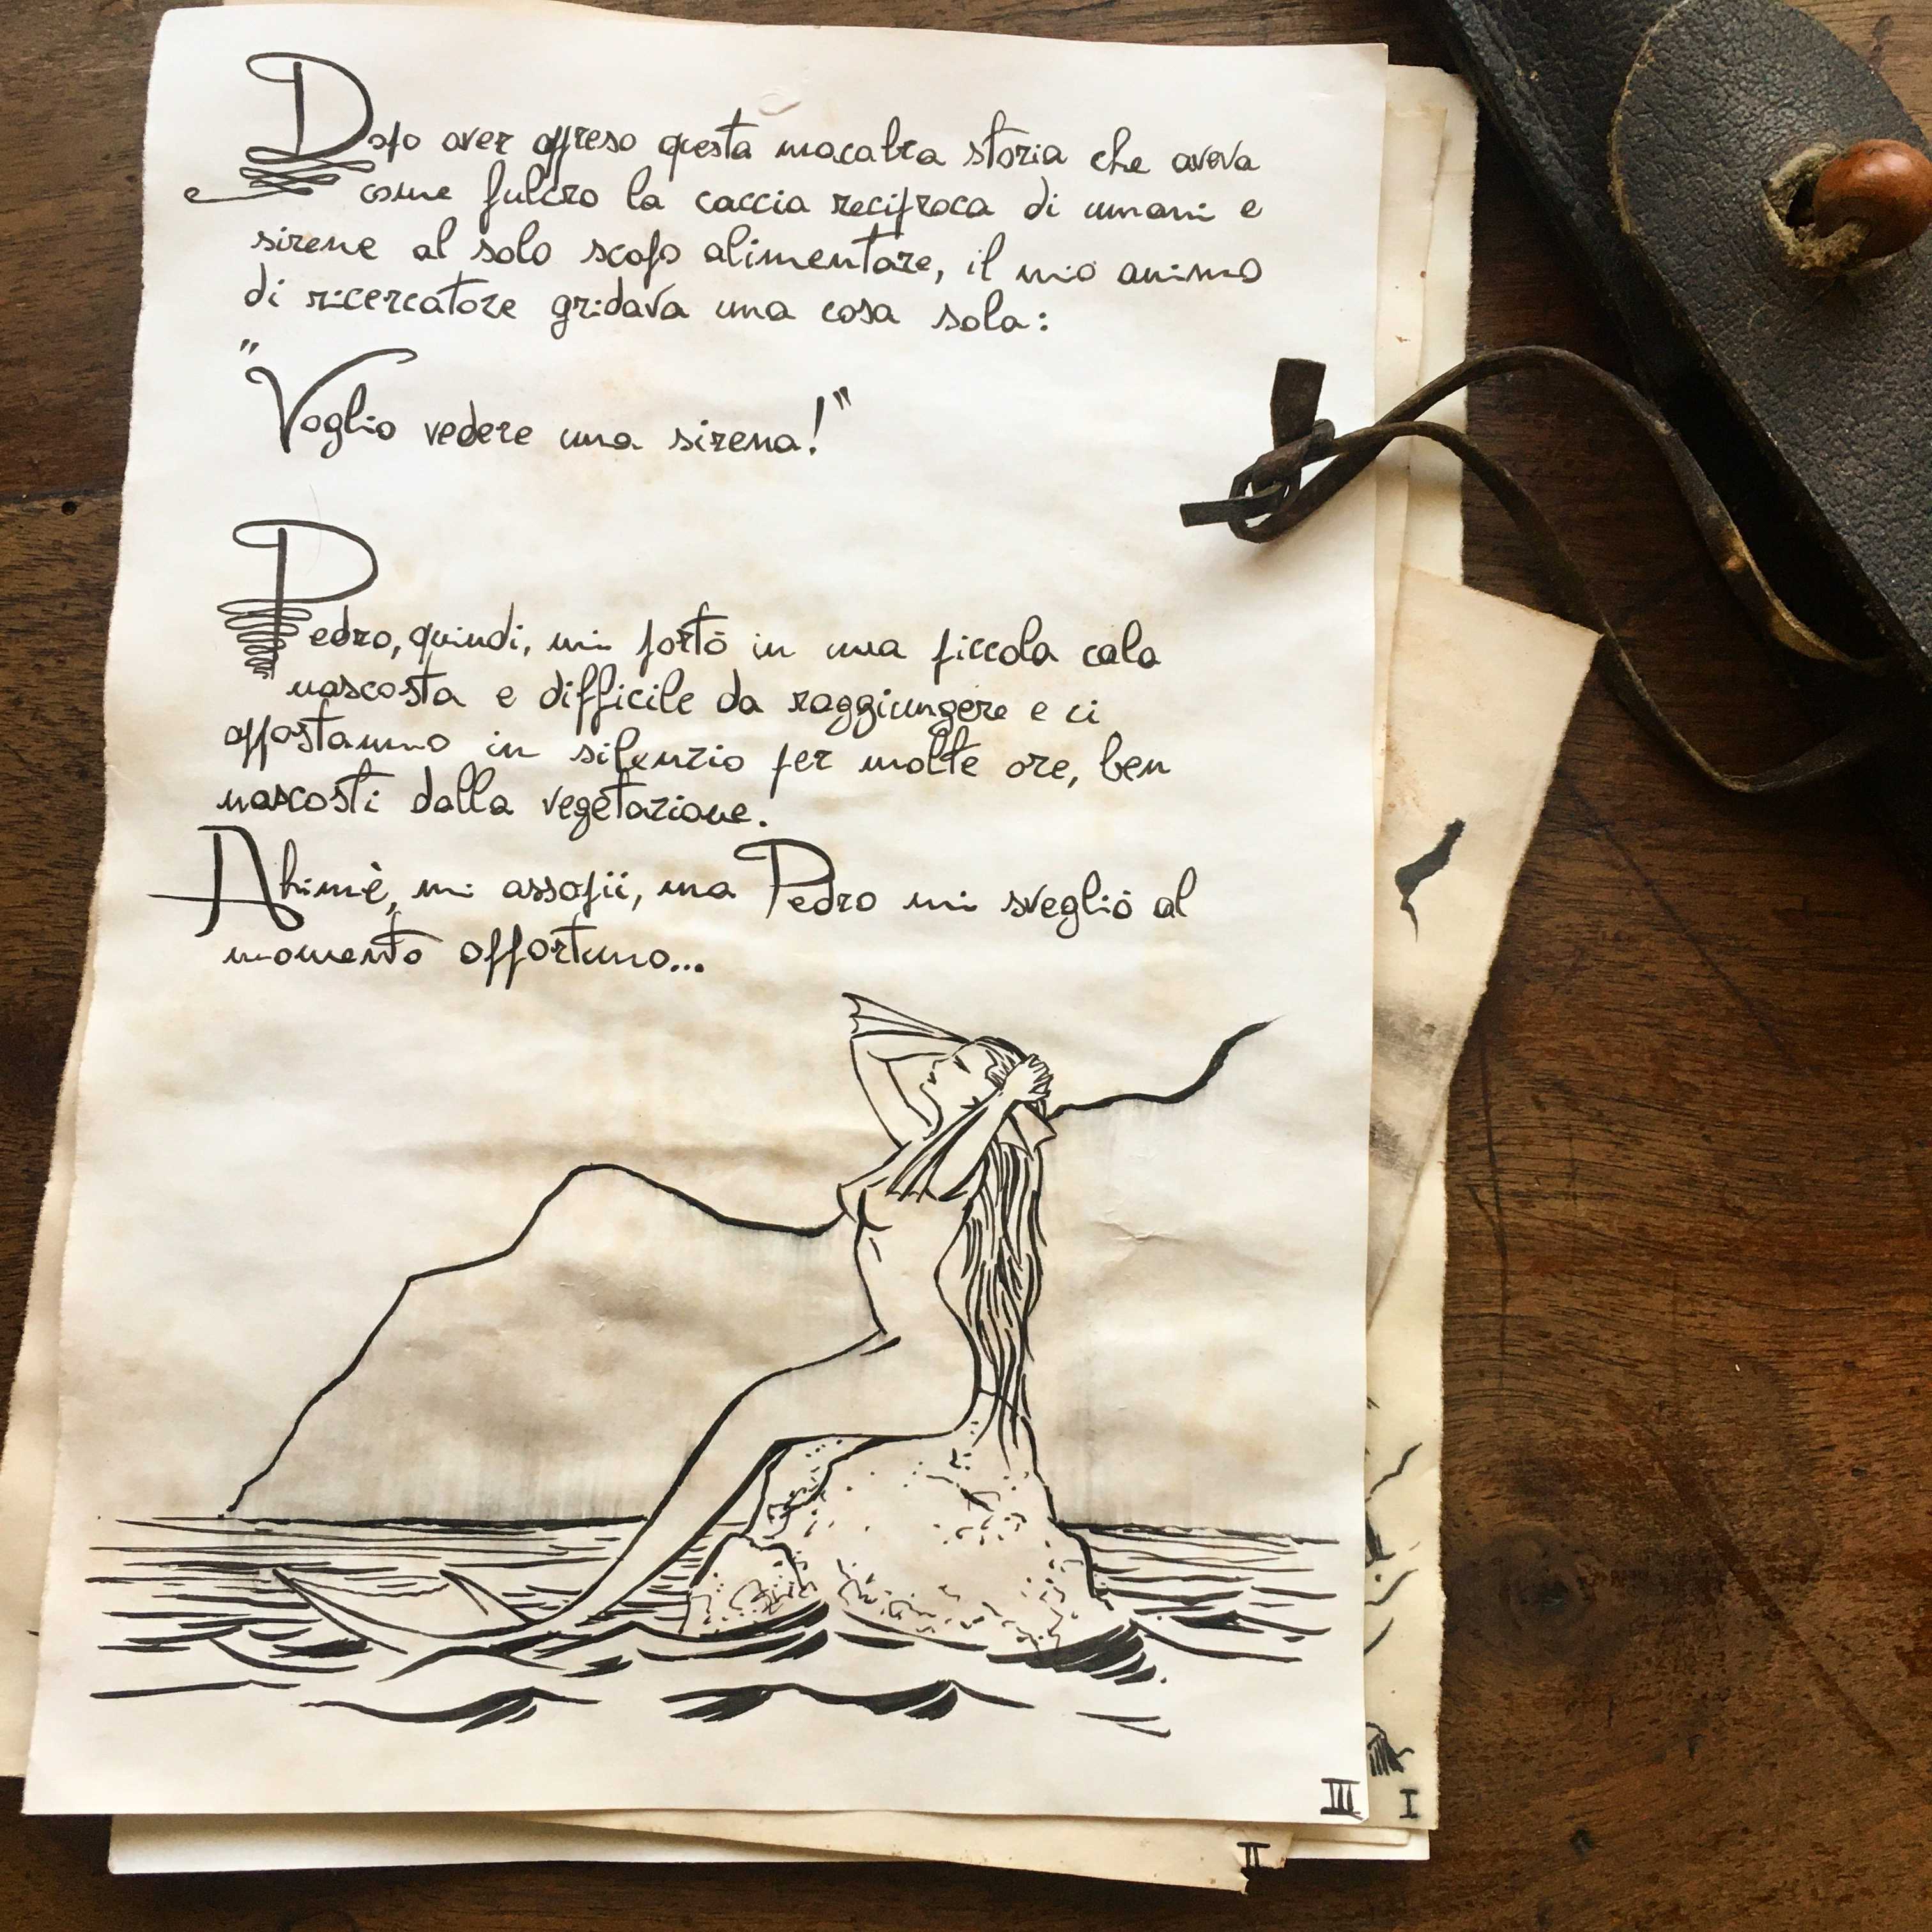 Dopo aver appreso questa macabra storia che aveva
come fulcro la caccia reciproca di umani e
sirene al solo scopo alimentare, il mio animo
di ricercatore gridava una cosa sola:
"Voglio vedere una sirena!"
Pedro, quindi, mi portò in una piccola cala
nascosta e difficile da raggiungere e ci
appostammo in silenzio per molte ore, ben
nascosti dalla vegetazione.
Ahimè, mi assopii, ma Pedro mi svegliò al
momento opportuno...
III
I
II